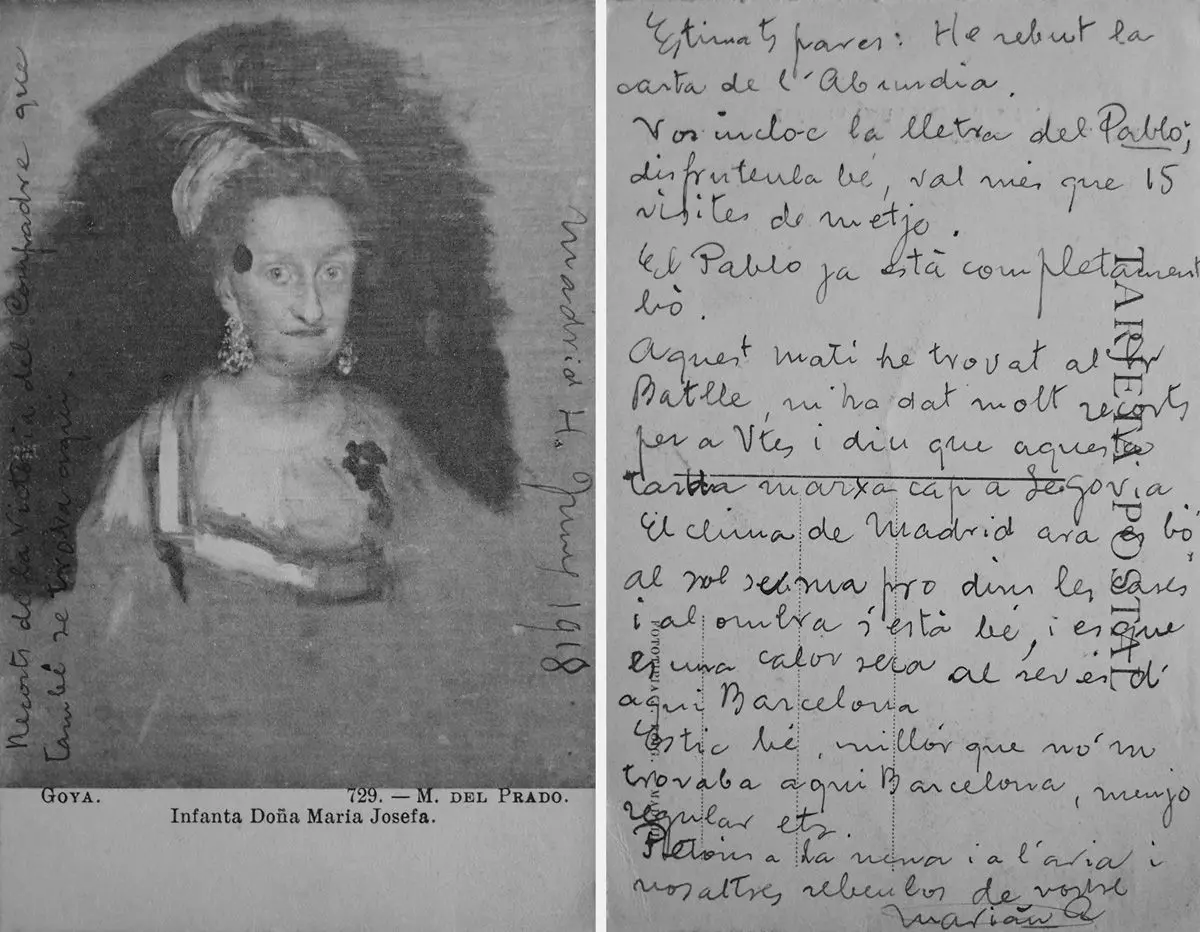 Recorts de la Victoria del Compadre que
també se trova aquí.
Madrid H. Juny 1918
GOYA.
729. — M. DEL PRADO.
Infanta Doña Maria Josefa.
Estimats pares: He rebut la
carta de l'Abundia.
Vos incloc la lletra del Pablo;
disfruteula bé, val més que 15
visites de metjo.
El Pablo ja está completament
bò.
Aquest mati he trovat al Sr
Batlle, m'ha dat molt recorts
per a Vtes i diu que aquesta
tarda marxa cap a Segovia
El clima de Madrid ara es bò,
al sol se crema pro dins les cases
i al ombra s'está bé, i es que
es una calor seca al revés d'
aqui Barcelona
Estic bé, millór que no'm
trovaba aqui Barcelona, menjo
regular etz.
Petons a la nena i a l'avia i
vosaltres rebeulos de vostre
Marián
TARJETA POSTAL
FOTOTIPIA